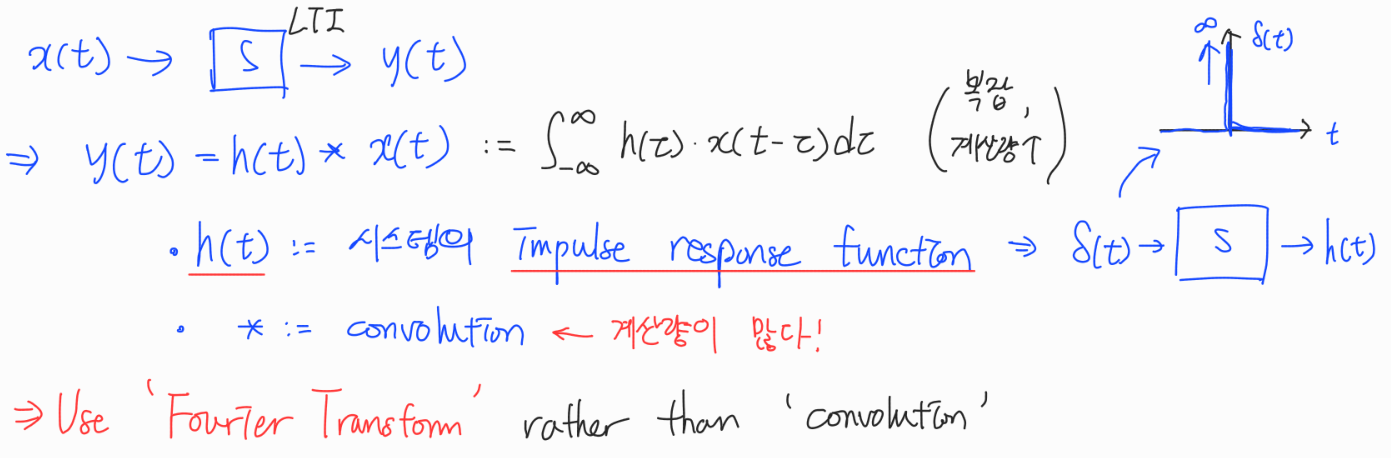 x(t) → S LTI → y(t)
∞ δ(t)
t
⇒ y(t) = h(t) * x(t) := ∫_{-∞}^{∞} h(τ)·x(t-τ)dτ (복잡, 계산량↑)
· h(t) := 시스템의 Impulse response function ⇒ δ(t) → S → h(t)
· * := convolution ← 계산량이 많다!
⇒ Use 'Fourier Transform' rather than 'convolution'